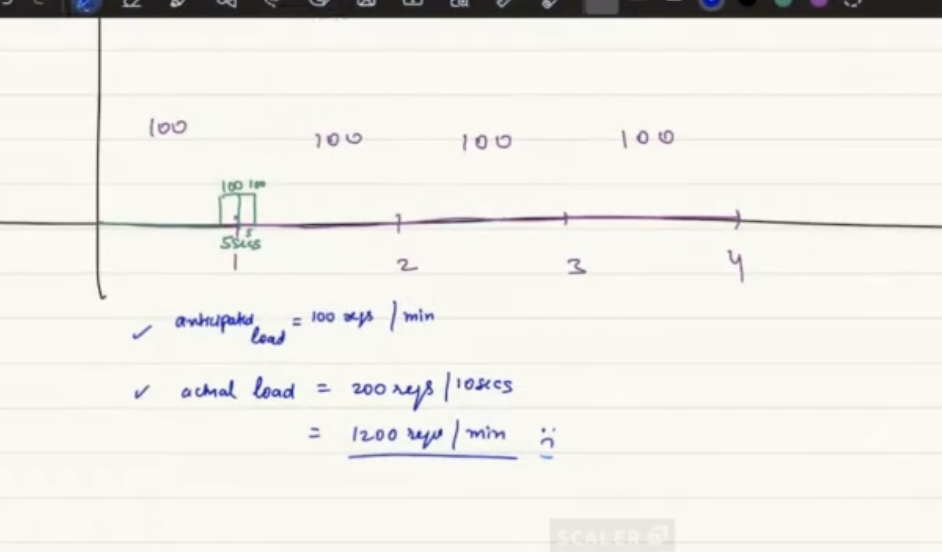 100 100 100 100
100 100
5secs 5
1 2 3 4
anticipated load = 100 reqs / min
actual load = 200 reqs / 10secs
= 1200 reqs / min
SCALER